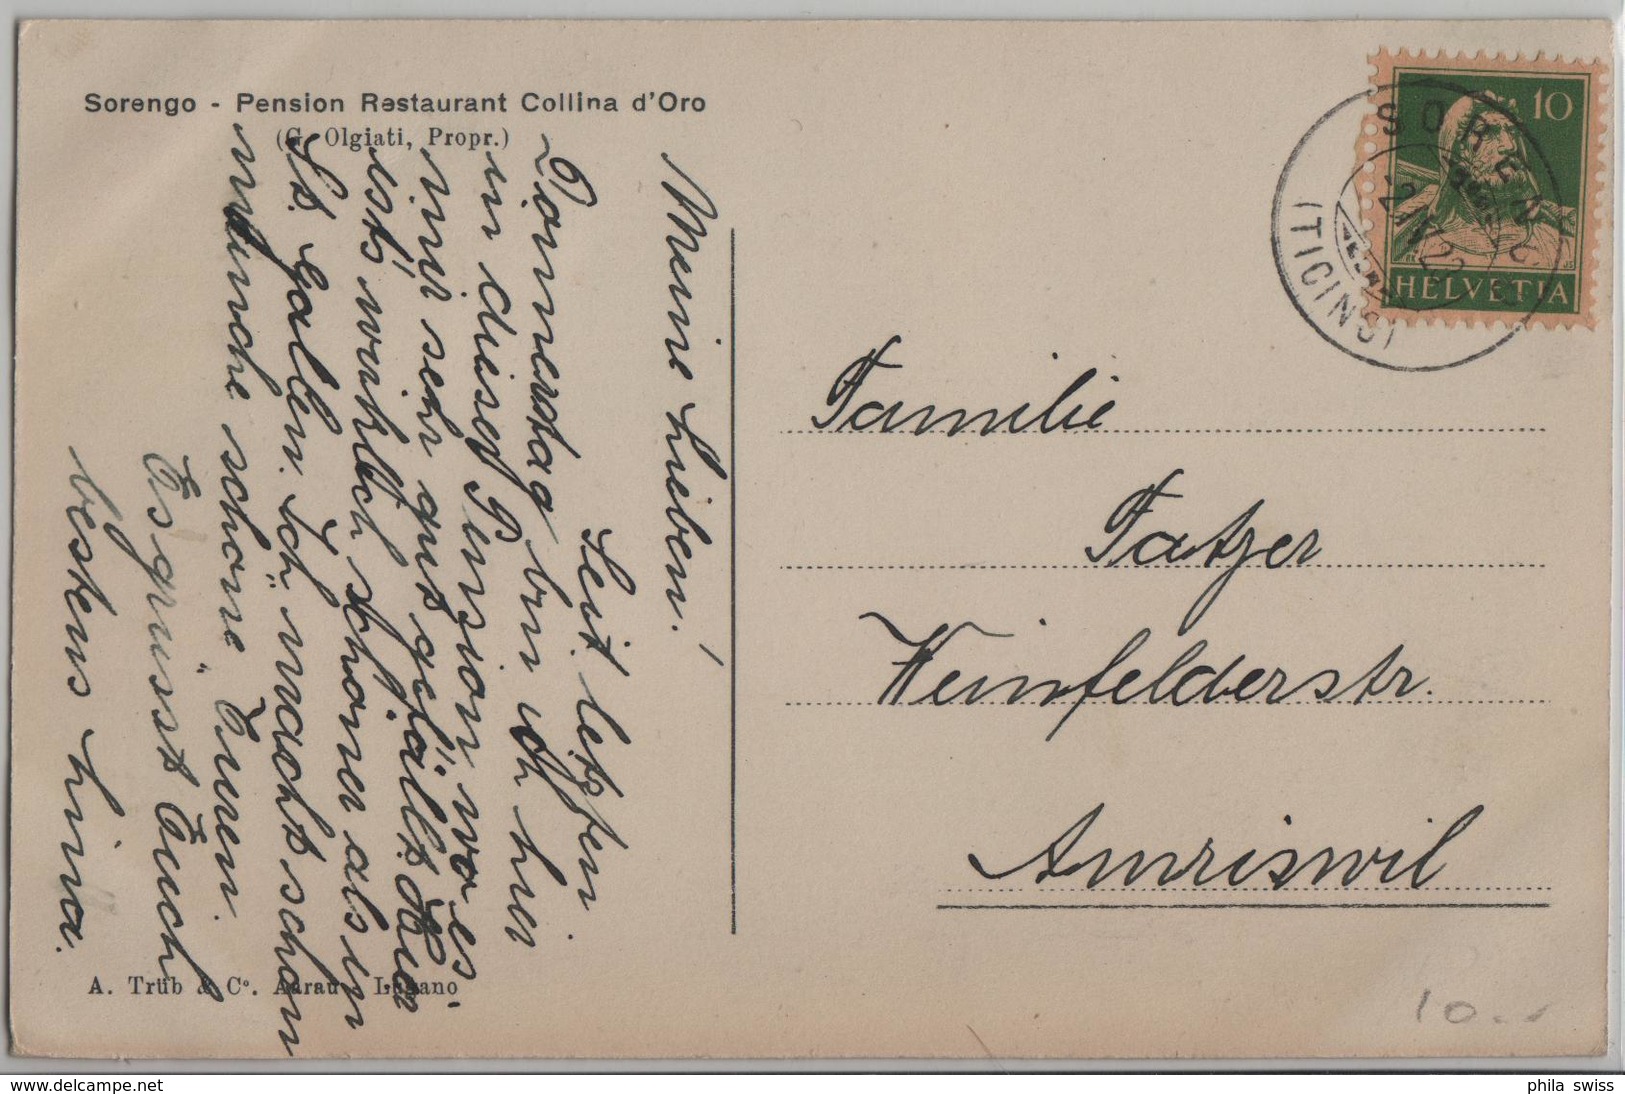 Sorengo - Pension Restaurant Collina d'Oro
(G. Olgiati, Propr.)
Meine Lieben!
Seit letzten
Donnerstag bin ich hier
in dieser Pension, wo es
mir sehr gut gefällt. Hier
ists wirklich schöner als in
St. Gallen. Ich macht schon
manche schöne Turen.
Es grüsst Euch
bestens Lina.
A. Trüb & Cº. Aarau - Lugano
10
HELVETIA
SORENGO
(TICINO)
Familie
Tatzer
Weinfelderstr.
Amriswil
10.-
www.delcampe.net
phila_swiss